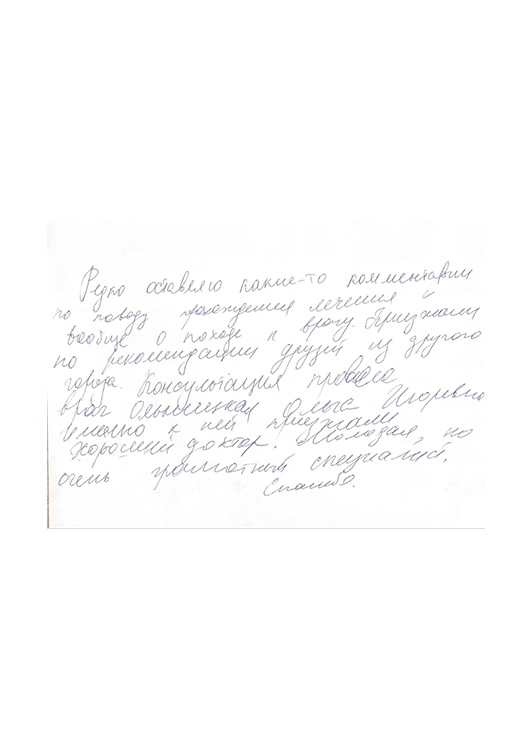 Редко оставляю какие-то комментарии
по поводу прохождения лечения и
вообще о походе к врачу. Приезжали
по рекомендации друзей из другого
города. Консультация провела
врач Ольга Игоревна
Именно к ней приезжали
Хороший доктор. Молодая, но
очень грамотный специалист.
Спасибо.